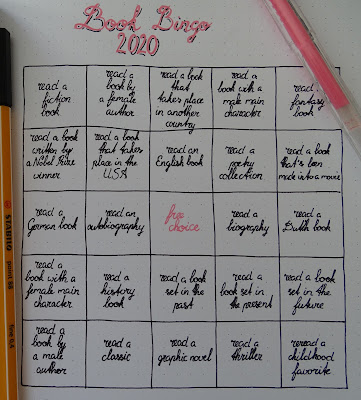 Book Bingo
2020
read a
fiction
book
read a
book by
a female
author
read a book
that
takes place
in another
country
read a
book with a
male main
character
read a
fantasy
book
read a book
written by
a Nobel Prize
winner
read a book
that takes
place in the
USA
read an
English book
read a
poetry
collection
read a book
that's been
made into a movie
read a
German book
read an
autobiography
free
choice
read a
biography
read a
Dutch book
read a
book with a
female main
character
read a
history
book
read a book
set in the
past
read a
book set in
the present
read a book
set in the
future
read a
book by
a male
author
read a
classic
read a
graphic novel
read a
thriller
reread a
childhood
favorite
STABILO
point 88
fine 0,4